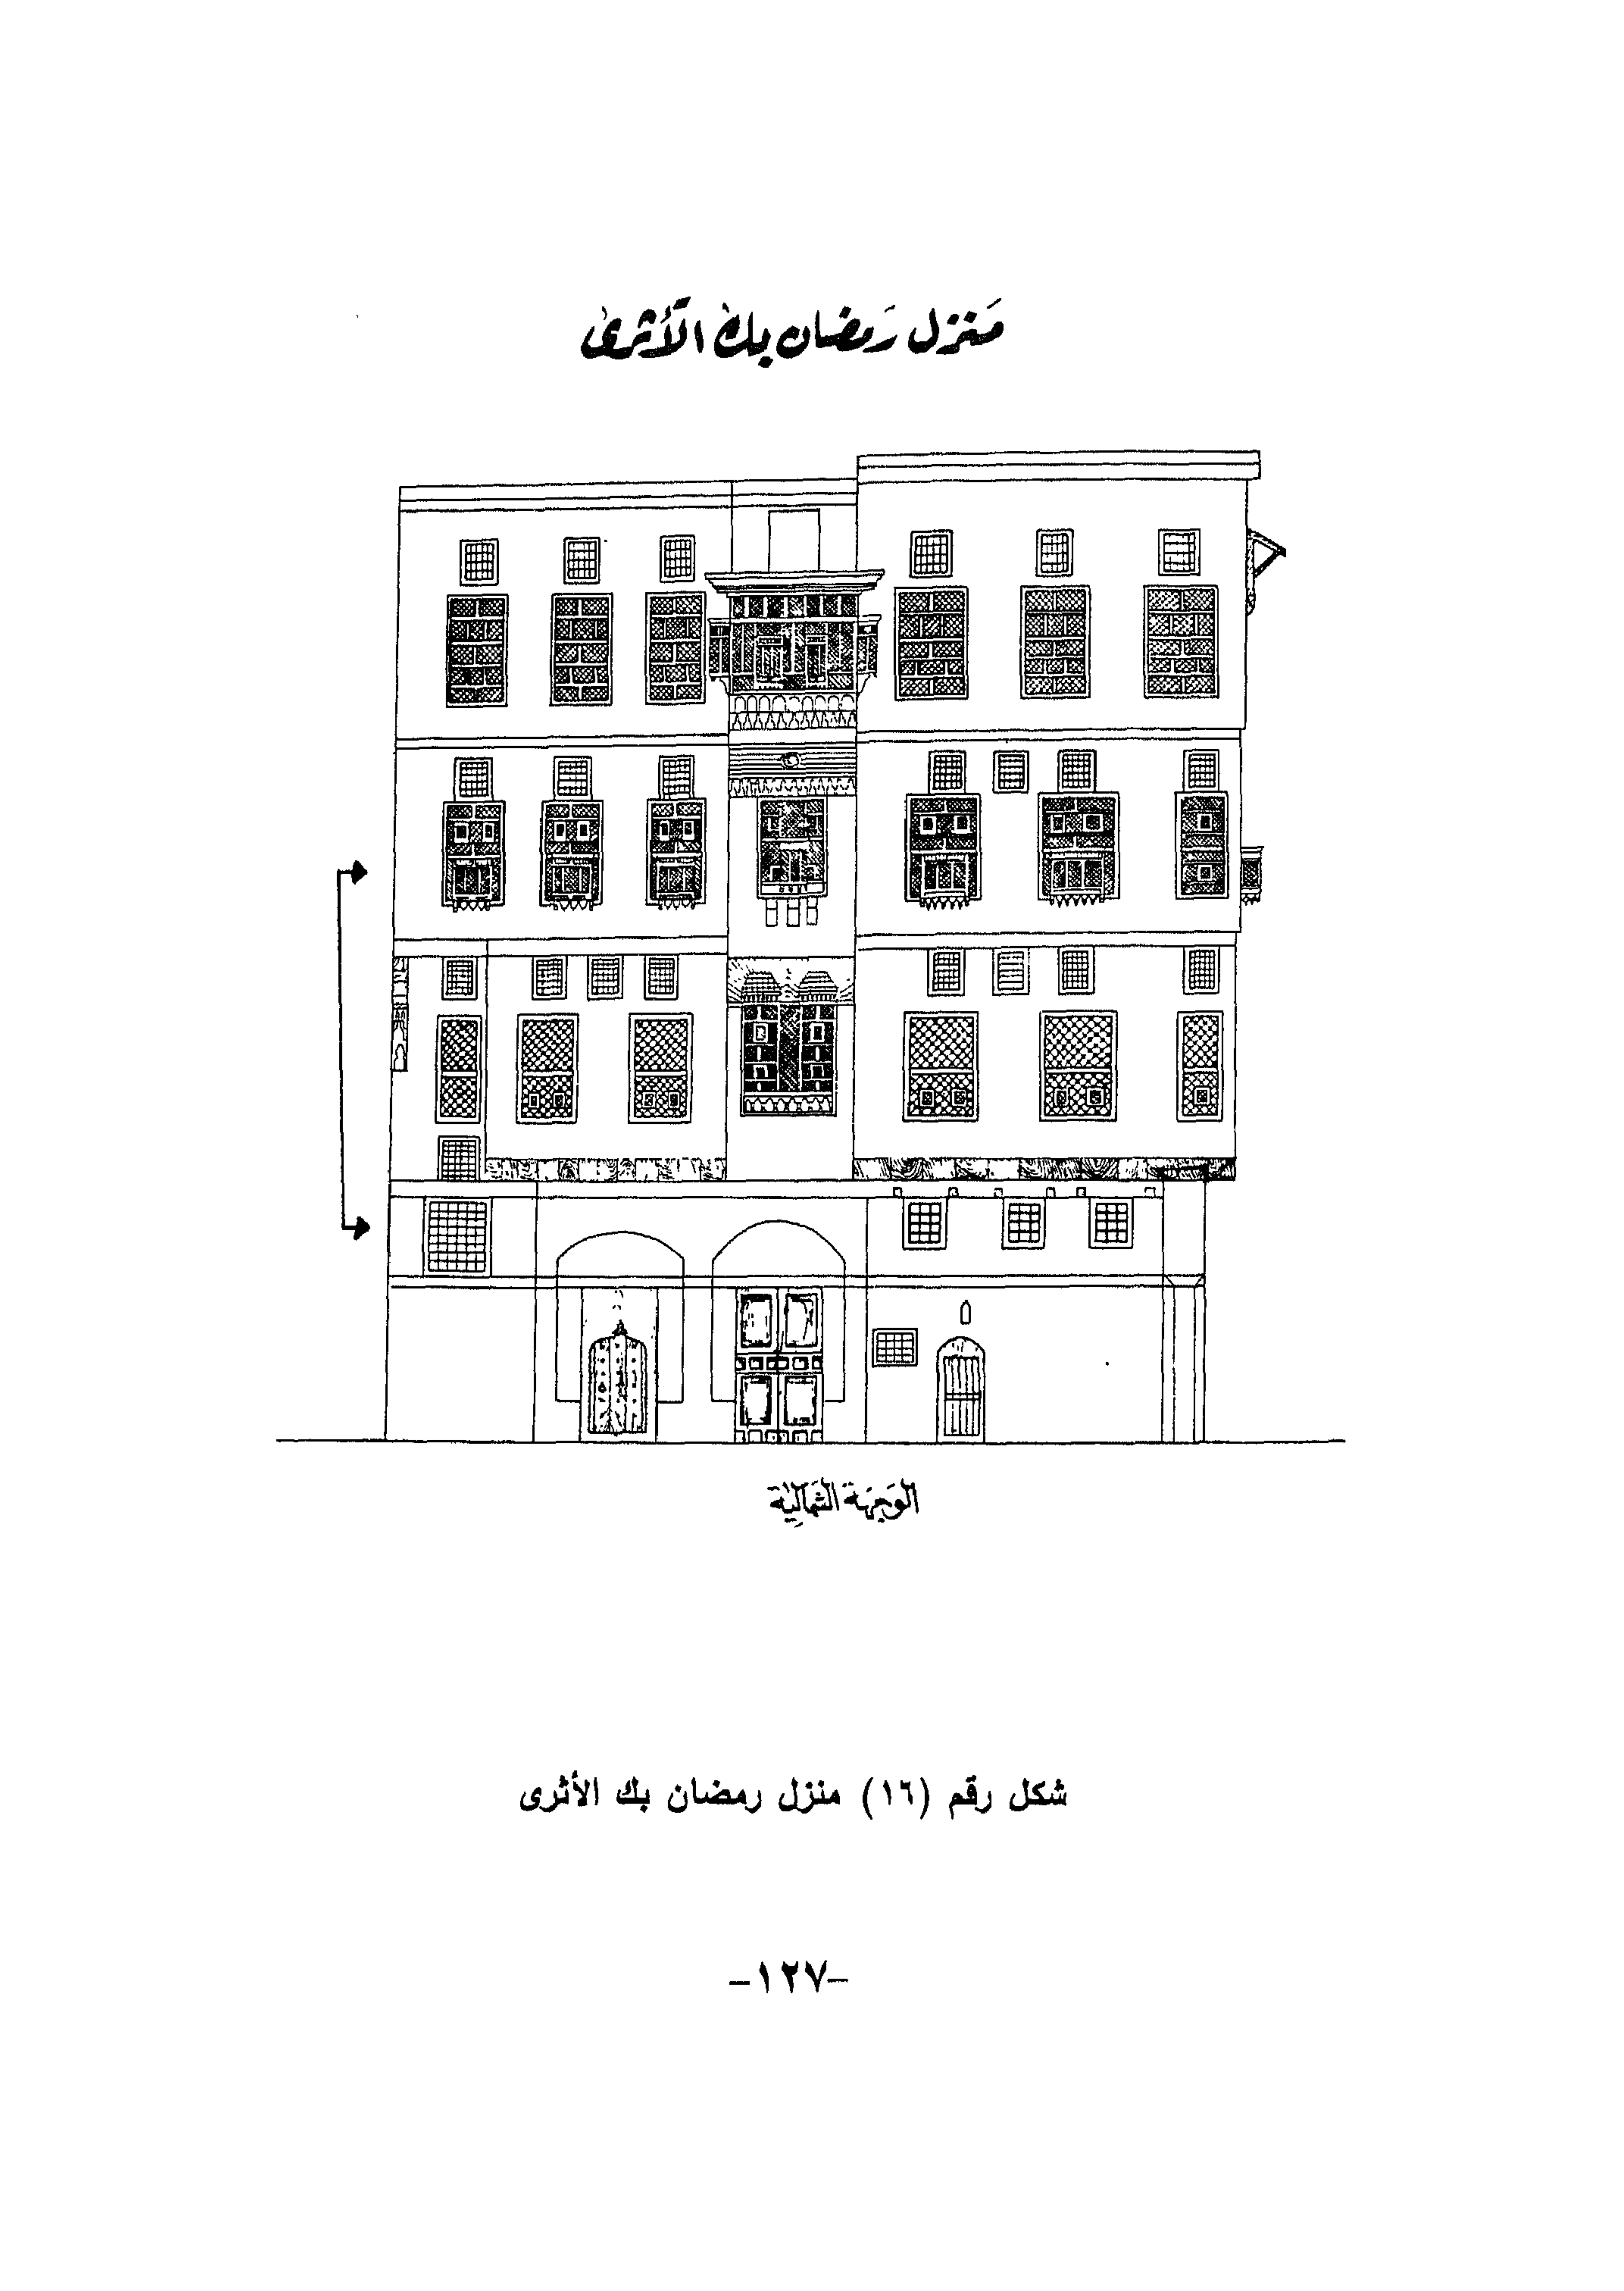 مَنزل رَمضان بك الأثرى
الوَجهَة الشمالية
شكل رقم (١٦) منزل رمضان بك الأثرى
-١٢٧-